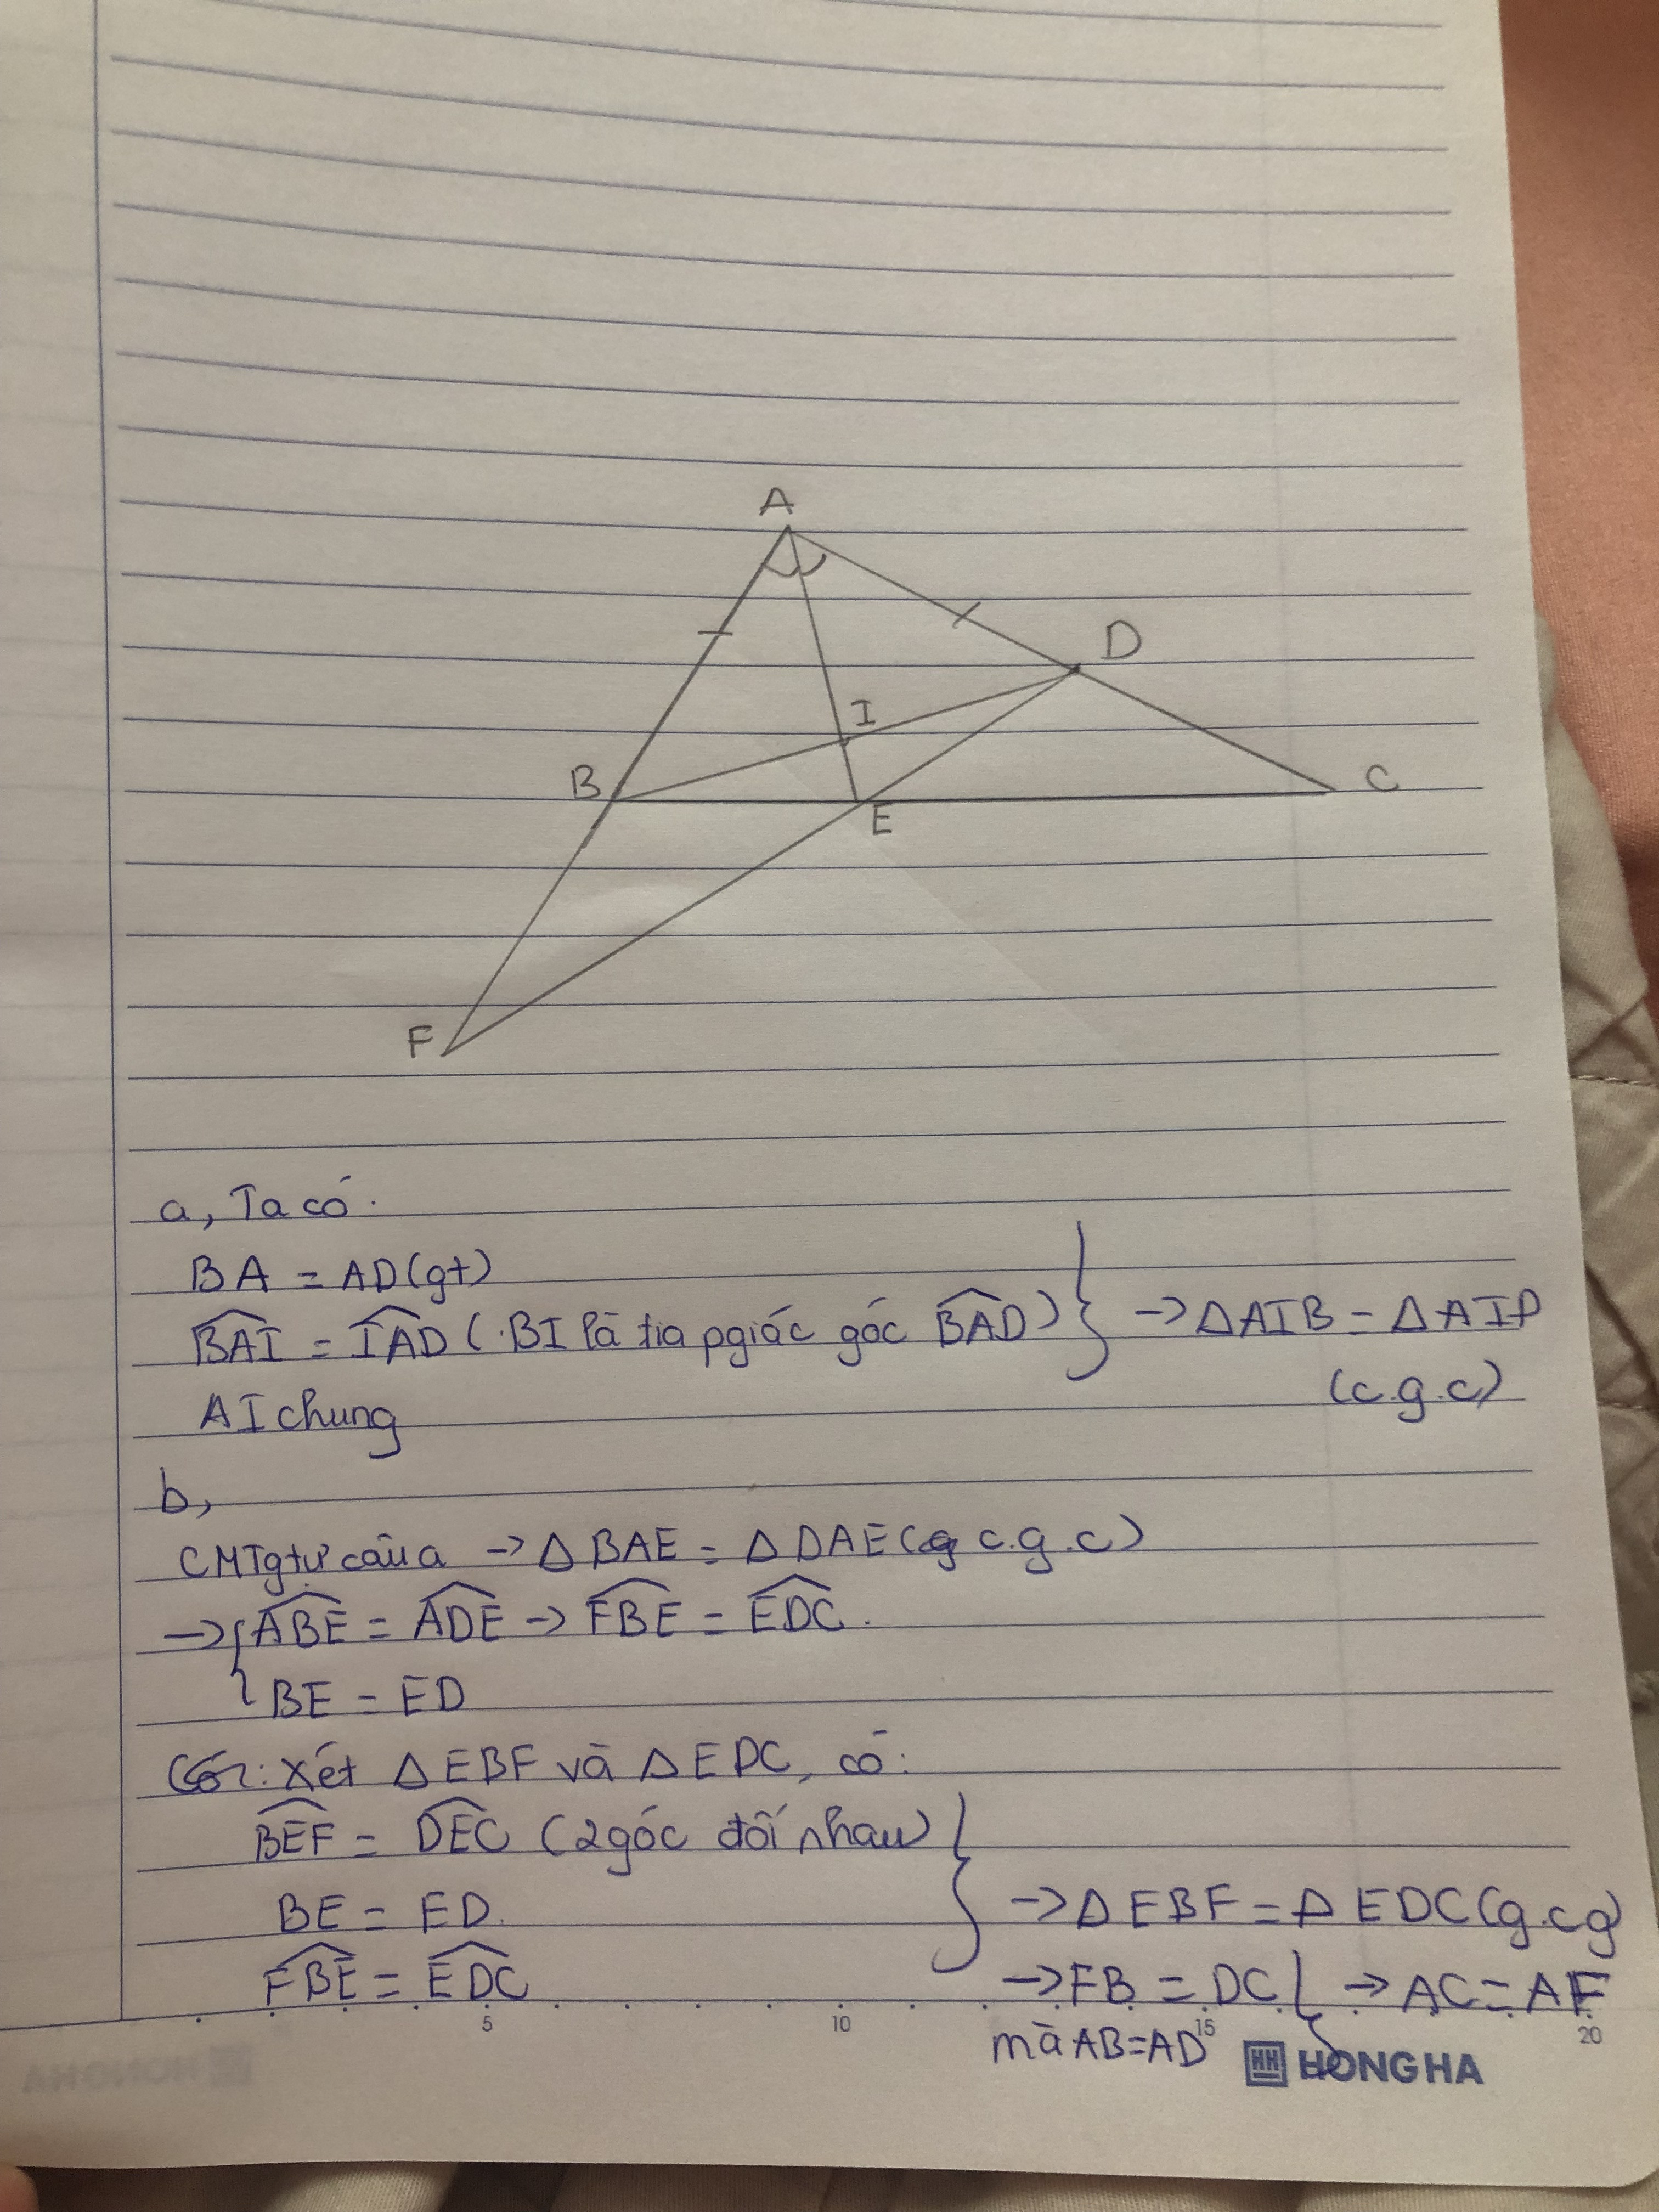 A
D
I
B
C
E
F
a, Ta có.
BA = AD (gt)
BAI = IAD (BI là tia pgiác góc BAD) } → ΔAIB = ΔAID
AI chung
(c.g.c)
b,
CMTgtự câu a → Δ BAE = Δ DAE (c.g.c)
→ { ABE = ADE → FBE = EDC.
BE = ED
Xét Δ EBF và Δ EDC, có:
BEF = DEC (2 góc đối nhau)
BE = ED.
→ Δ EBF = Δ EDC (g.cg)
FBE = EDC
→ FB = DC } → AC = AF
mà AB = AD
5 10 15 20
HONG HA